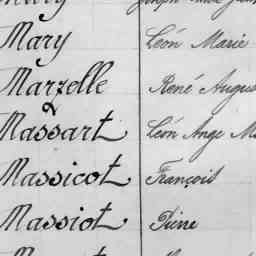 Mary Léon Marie
Marzelle René Augus
Massart Léon Ange M
Massicot François
Massiot Pierre